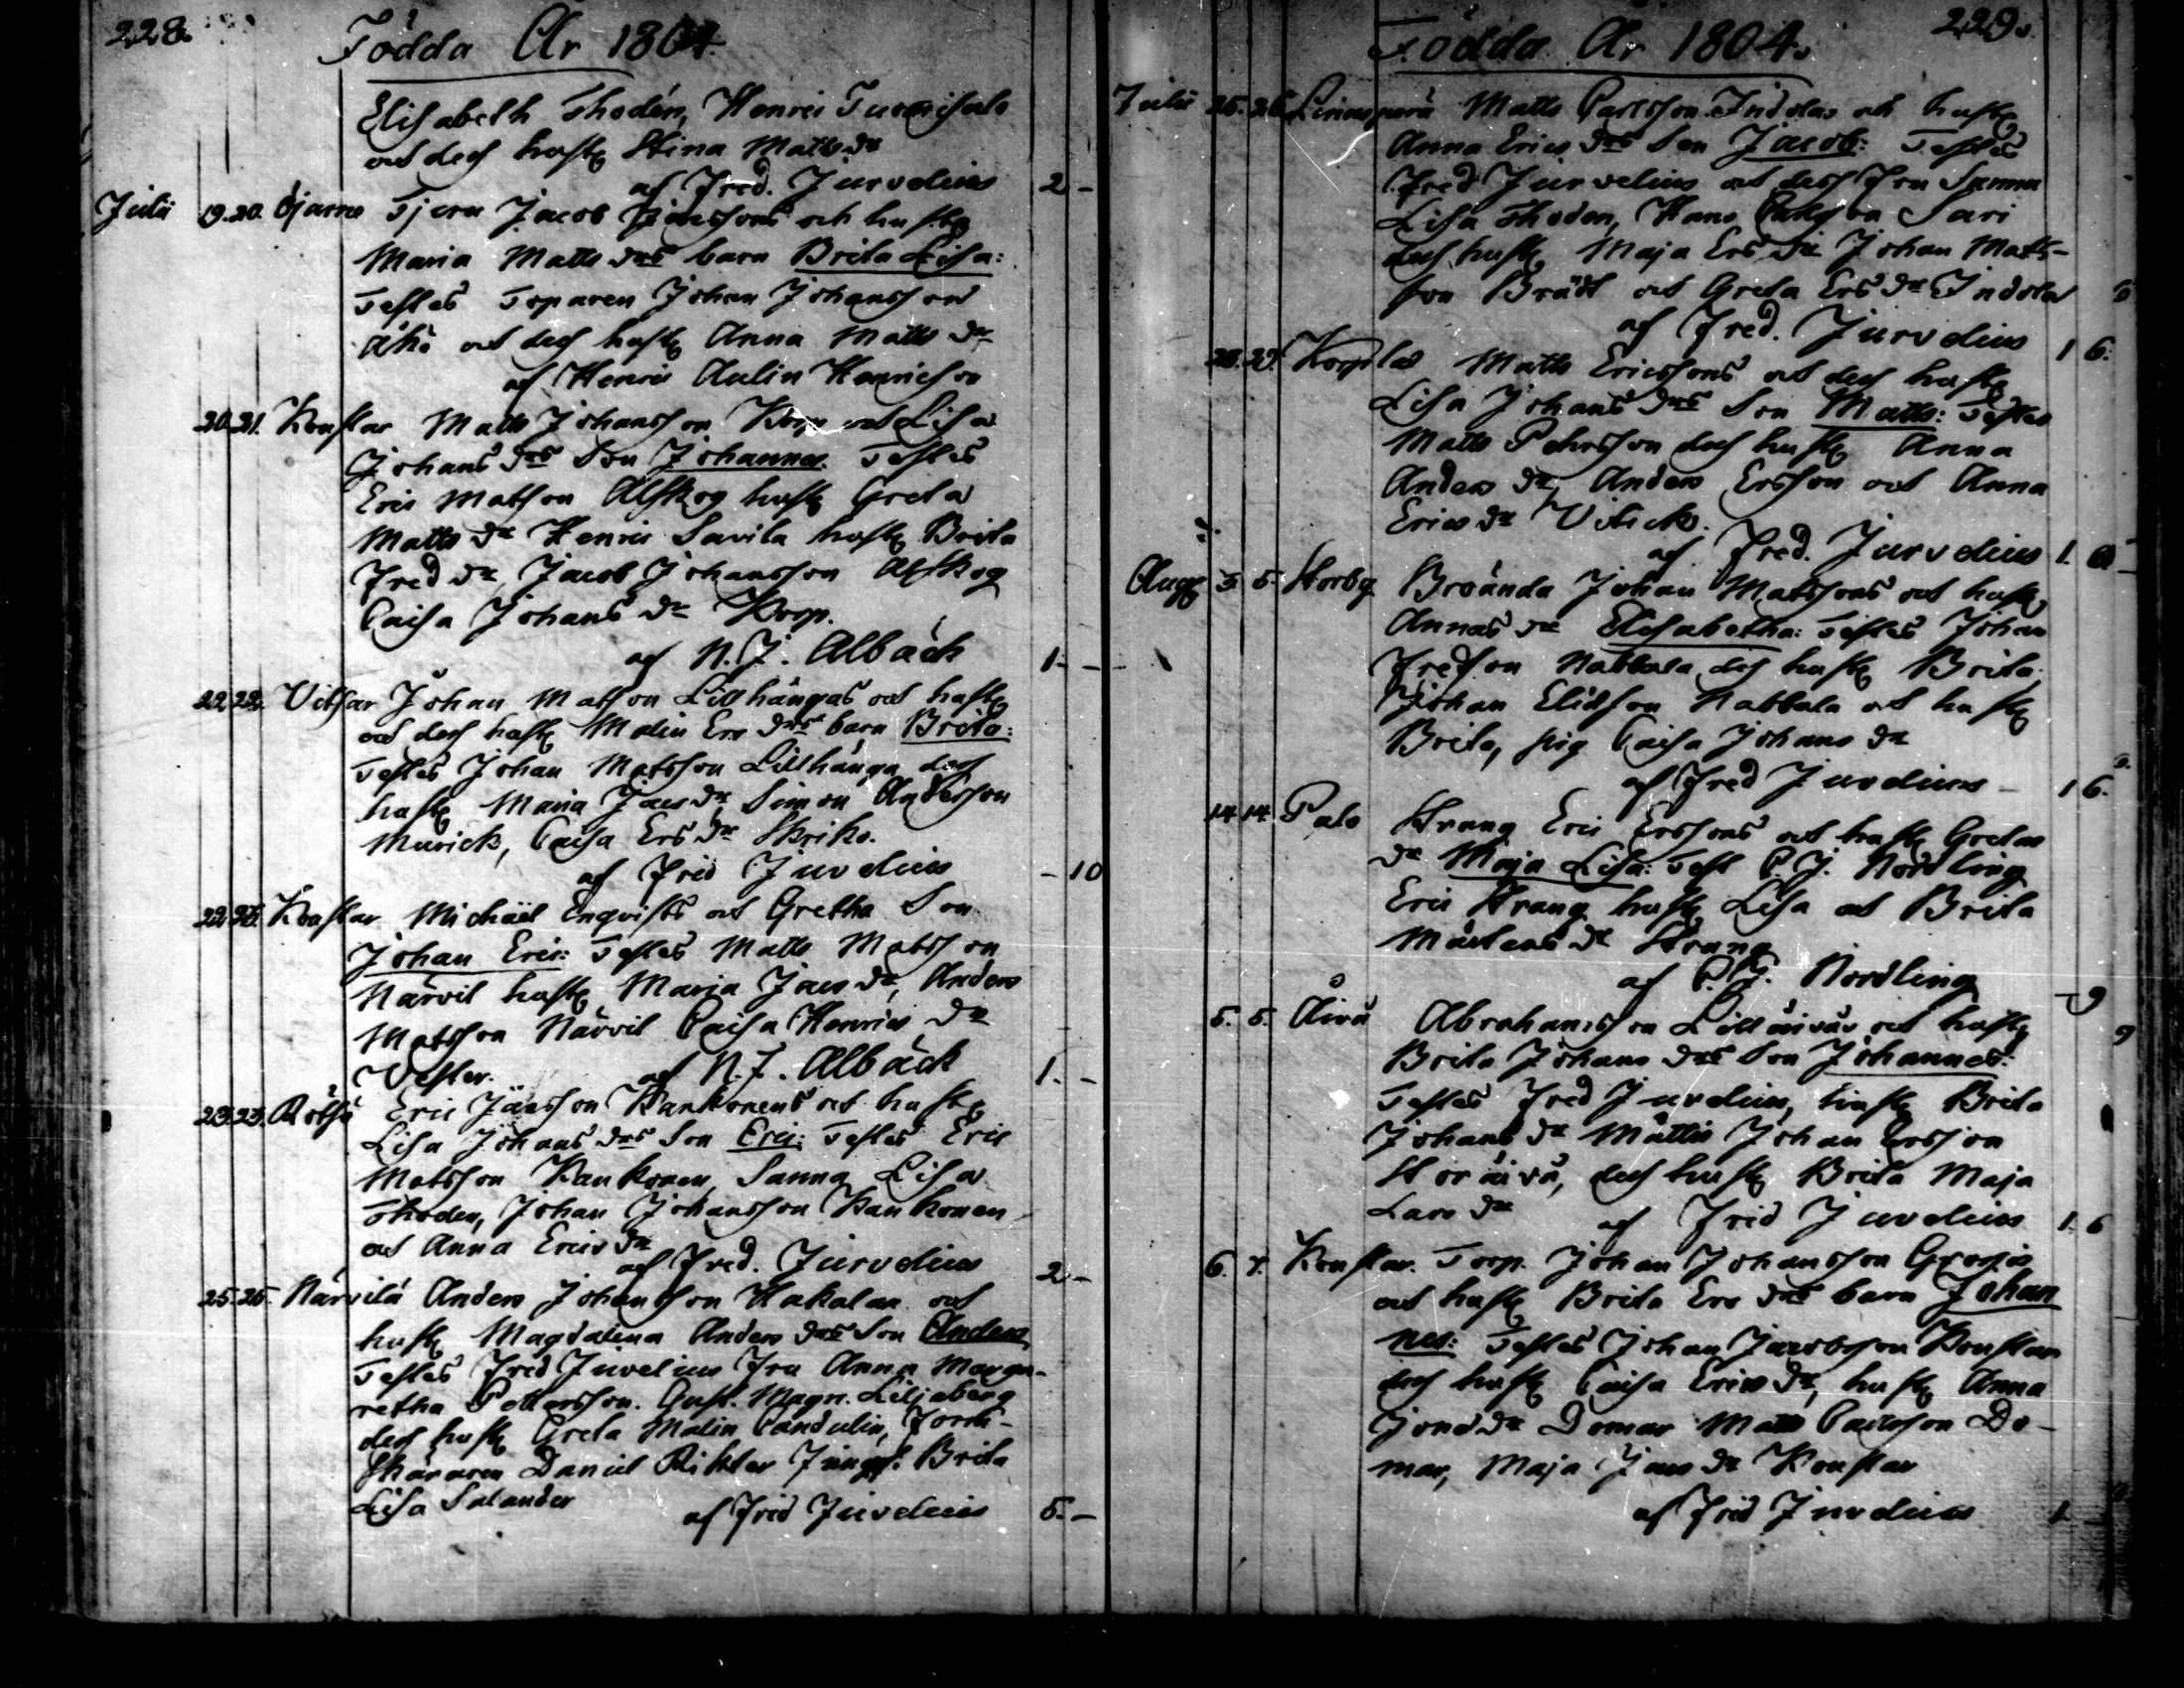 228.
Födda År 1804
Elisabeth Thodén, Henric
och dess hustr Stina Matts dr
af Fred. Juvelius 2 -
Julii 19. 20. Öjarne Tjern Jacob och hustr
Maria Matts drs barn Brita Lisa:
Testes Torparen Johan Johansson
Åhö och dess hustr Anna Matts dr
af Henric Aulin Henricson
20. 21. Konstar Matts Johansson Korp och Lisa
Johans drs Son Johannes. Testes
Eric Matson Alskog hustr Greta
Matts dr Henric Savila hustr Brita
Fred dr, Jacob Johansson Alskog
Caisa Johans dr Korp.
af N. J. Albäck 1. -
22. 22. Vitsar Johan Matson Lillhängas och hustr
och dess hustr Malin Ers drs barn Brita:
Testes Johan Matsson Lillhänga dess
hustr Maria Jacs dr, Simon Andersson
Murick, Caisa Ers dr Skriko.
af Fred Juvelius - 10
22. 23. Konstar Michaël Enqvists och Gretha Son
Johan Eric: Testes Matts Matsson
Närvil hustr Maria Jacs dr, Anders
Matsson Närvil Caisa Henrics dr
Vester. af N. J. Albäck 1. -
23. 23. Rötsö Eric Jönsson Kankonens och hustr
Lisa Johans drs Son Eric: Testes Eric
Matsson Kankonen, Sanna Lisa
Thoden, Johan Johansson Kankonen
och Anna Erics dr
af Fred. Juvelius 2 -
25. 25. Närvilä Anders Johansson Hakalax och
hustr Magdalena Anders drs Son Anders
Testes Fred Juvelius Fru Anna Marga-
retha Pettersson. Gust. Magn. Liljeberg
dess hustr Greta Malin Candulin,
Daniel Rikter Jungf. Brita
Lisa Salander af Fred Juvelius 5. -
229.
Födda År 1804.
Julii 25. 26. Matts Carlsson Indolas och hustr
Anna Erics drs Son Jacob: Testes
Fred Juvelius och dess Fru Sanna
Lisa Thoden, Hans Carlsson Sari
dess hustr Maja Ers dr Johan Matts-
son Brädt och Greta Ers dr Indola
af Fred. Juvelius 1 6.
28. 29. Korplax Matts Ericssons och dess hustr
Lisa Johans drs Son Matts: Testes
Matts Pehrsson dess hustr Anna
Anders dr, Anders Ersson och Anna
Erics dr Vitick.
af Fred. Juvelius 1. 6
Aug 3 5. Storby Broända Johan Matssons och hustr
Annas dr Elisabetha: Testes Johan
Fredson Nabbala dess hustr Brita,
Johan Eliësson Nabbala och hustr
Brita, pig Caisa Johans dr
af Fred Juvelius 1 6.
14. 14. Palo Strang Eric Erssons och hustr Gretas
dr Maja Lisa: Test C. J. Nordling
Eric Strang hustr Lisa och Brita
Mårtens dr Strang
af C. J. Nordling - 9
5. 5. Åivu Abrahamsson och hustr
Brita Johans drs Son Johannes:
Testes Fred Juvelius, hustr Brita
Johans dr Mattis Johan Ersson
dess hustr Brita Maja
Lars dr af Fred Juvelius 1. 6
6. 7. Konstar. Torp. Johan Johansson
och hustr Brita Ers drs barn Johan
nes: Testes Johan Jacobsson Konstar
dess hustr Caisa Erics dr, hustr Anna
dr Domar Matts Carlsson Do-
mar, Maja Jacs dr Konstar
af Fred Juvelius 1 -